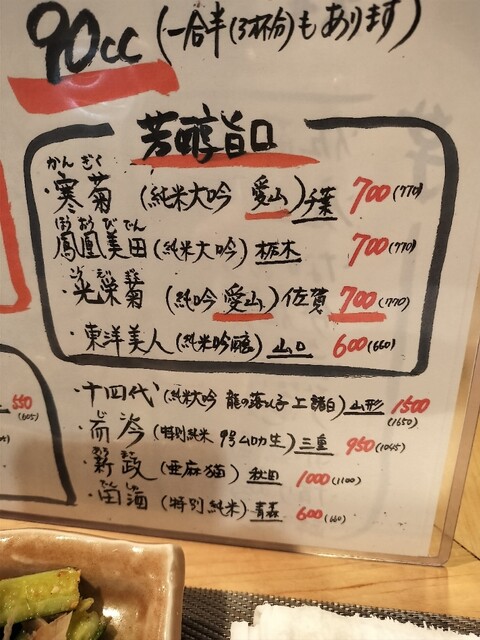 90cc (一合半(3杯分)もあります)
芳醇旨口
かんぎく
・寒菊 (純米大吟 愛山)千葉 700(770)
ほうおうびでん
鳳凰美田(純米大吟)栃木 700(770)
・光栄菊 (純吟愛山)佐賀 700(770)
・東洋美人(純米吟醸)山口 600(660)
・十四代(純米大吟 龍の落とし子上諸白)山形 1500
(1650)
550
(605)
じ
・而今(特別純米 9号ムロカ生)三重 950(1045)
・新政(亜麻猫)秋田 1000(1100)
でんしゅ
・田酒(特別純米)青森 600(660)